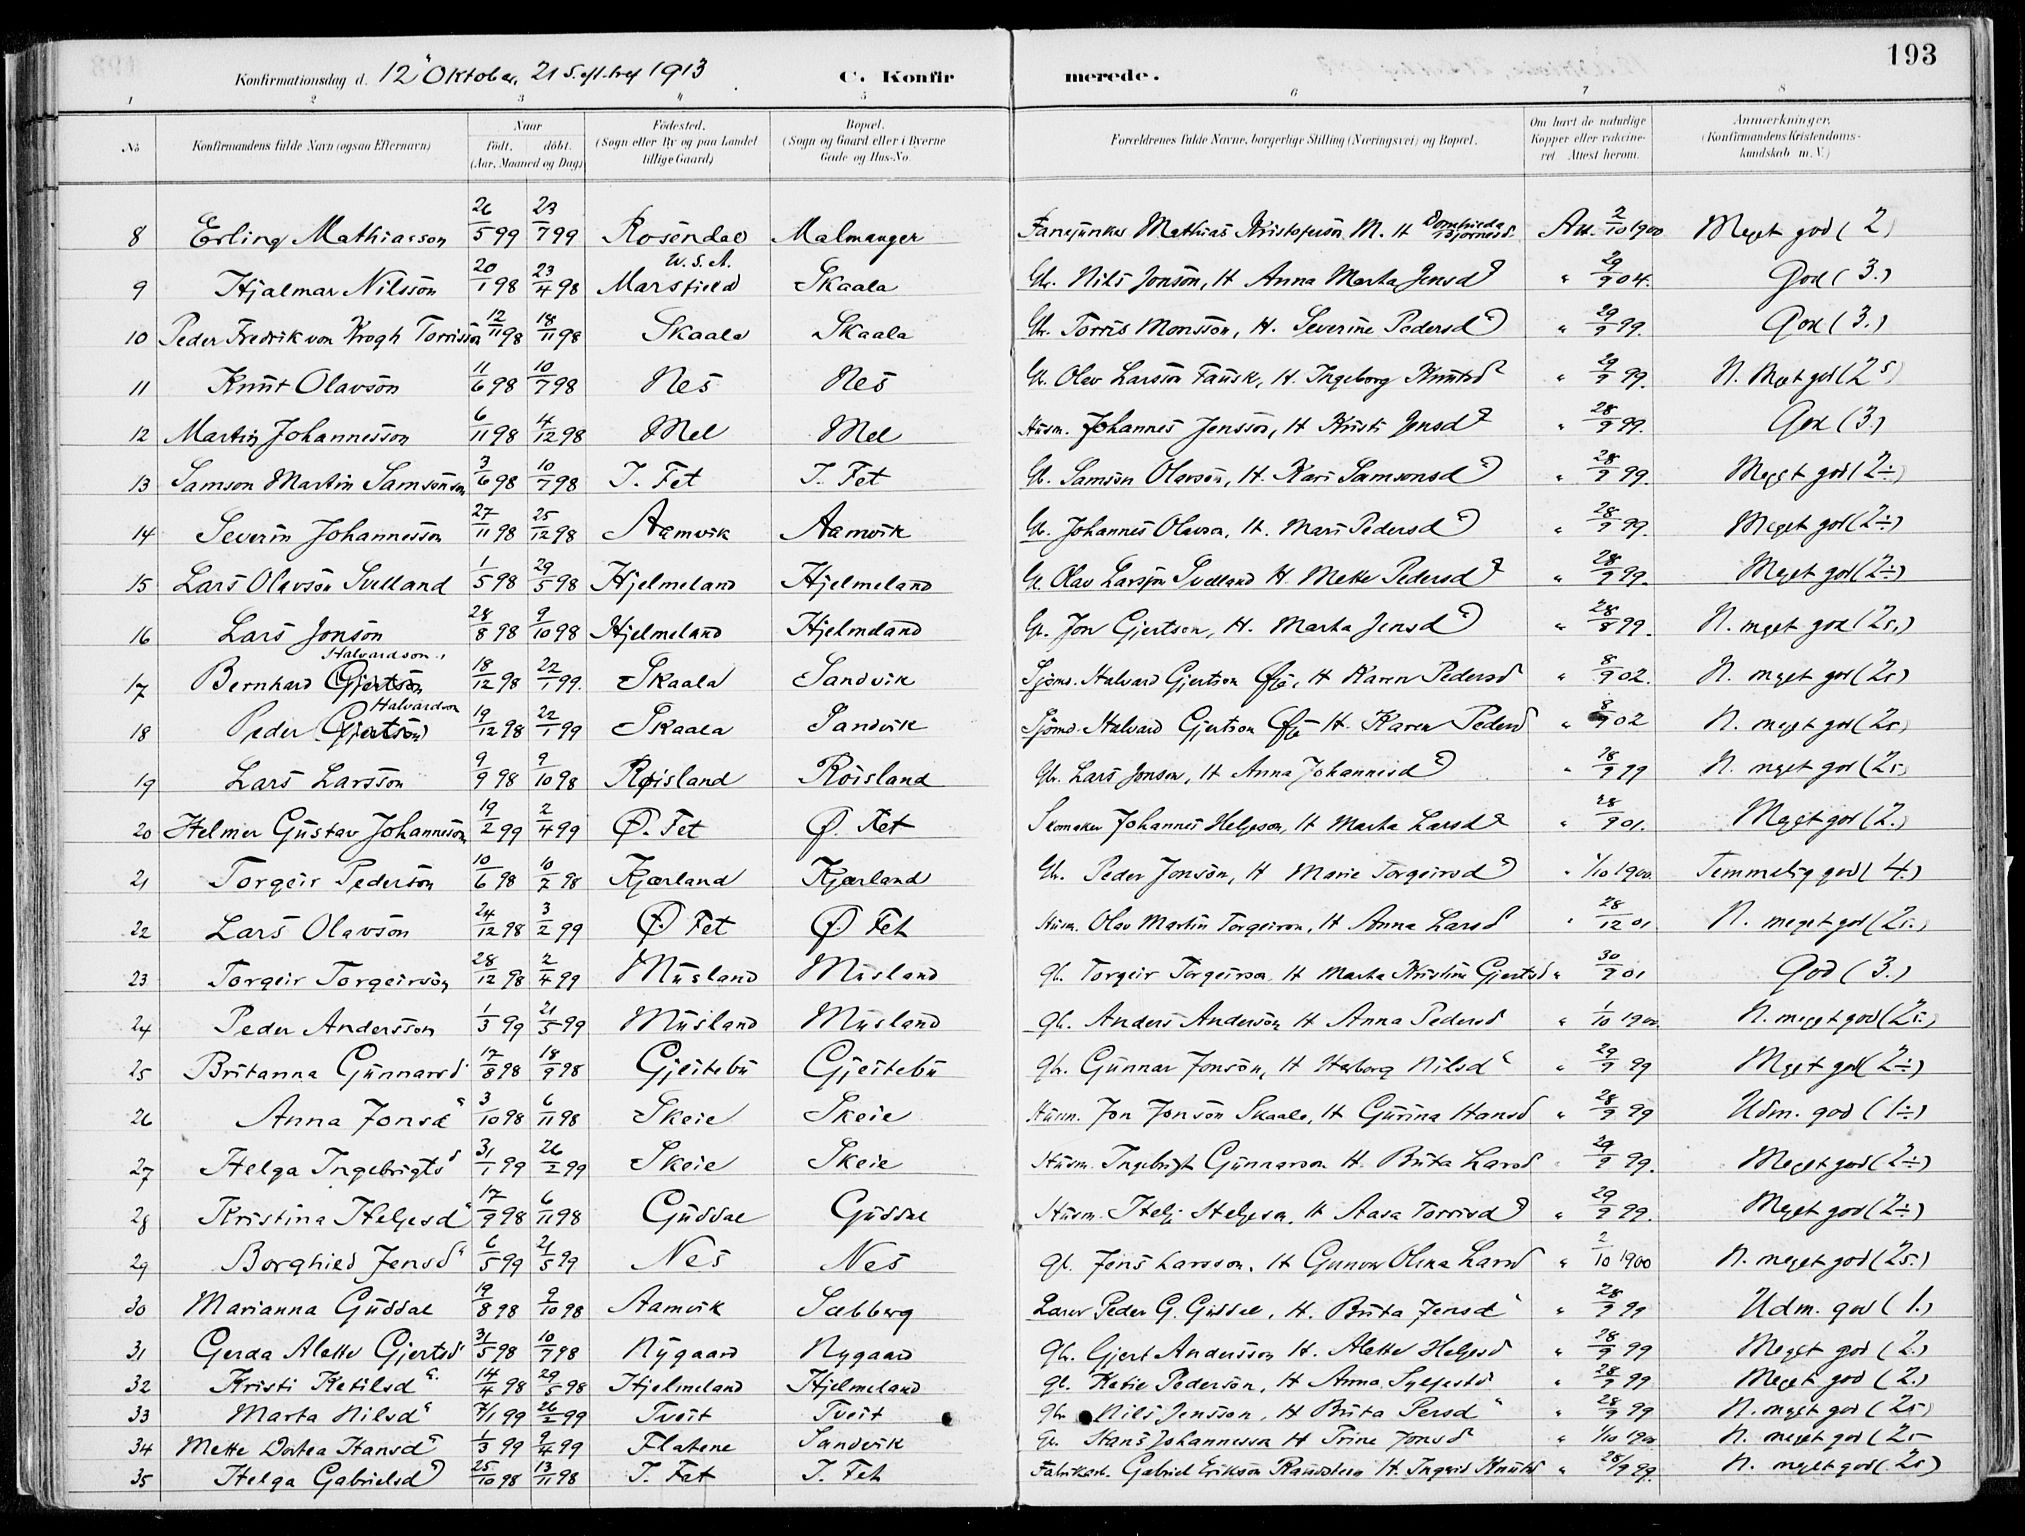 193
Konfirmationsdag d. 12" Oktober, 21 S. eft. tref 1913 C. Konfirmerede.
1 2 3 4 5 6 7 8
No Konfirmandens fulde Navn (ogsaa Efternavn) Naar født. døbt. (Aar, Maaned og Dag) Fødested. (Sogn eller By og paa Landet tillige Gaard) Bopæl. (Sogn og Gaard eller i Byerne Gade og Hus-No. Forældrenes fulde Navne, borgerlige Stilling (Næringsvei) og Bopæl. Om havt de naturlige Kopper eller vaccineret Attest herom. Anmærkninger. (Konfirmandens Kristendomskundskab m.V.)
8 Erling Mathiasson 26/5 99 23/7 99 Rosendal Malmanger Fanejunker Mathias Kristoferson M. H Att. 2/10 1900 Meget god (2)
9 Hjalmar Nilsson 20/1 98 23/4 98 Marsfield U.S.A. Skaala Gbr. Nils Jonson, H Anna Marta Jensd " 29/9 04. God (3.)
10 Peder Fredrik von Krogh Torrisson 12/11 98 18/11 98 Skaala Skaala Gbr. Torris Monsson, H. Severine Pedersd " 29/9 99. God (3.)
11 Knut Olavson 11/6 98 10/7 98 Nes Nes Gb. Olav Larsson Fausk, H. Ingeborg Knutsd " 29/9 99. N. Meget god (25)
12 Martin Johannesson 6/11 98 4/12 98 Mel Mel Husm. Johannes Jensson, H Kristi Jensd " 28/9 99. God (3.)
13 Samson Martin Samsonson 3/6 98 10/7 98 I. Fet I. Fet Gb. Samson Olavson, H. Kari Samsonsd " 28/9 99. Meget god (2÷)
14 Severin Johannesson 27/11 98 25/12 98 Aamvik Aamvik Gb. Johannes Olavson, H. Mari Pedersd " 28/9 99. Meget god (2÷)
15 Lars Olavson Svelland 1/5 98 29/5 98 Hjelmeland Hjelmeland G. Olav Larsson Svelland H. Mette Pedersd " 28/9 99. Meget god (2÷)
16 Lars Jonson 28/8 98 9/10 98 Hjelmeland Hjelmeland Gb. Jon Gjertson, H. Marta Jensd " 28/8 99. N. meget god (25.)
17 Bernhard Gjertson Halvardson 18/12 98 22/1 99. Skaala Sandvik Sjømd. Halvard Gjertson Øfje, H Karen Pedersd " 8/9 02. N. meget god (25)
18 Peder Gjertson Halvardson 19/12 98 22/1 99 Skaala Sandvik Sjømd. Halvard Gjertson Øfje H. Karen Pedersd " 8/9 02 N. meget god (25)
19 Lars Larsson 9/9 98 9/10 98 Røisland Røisland Gbr. Lars Jonson, H Anna Johannesd " 28/9 99 N. meget god (25)
20 Helmer Gustav Johannesson 19/2 99 2/4 99 Ø. Fet Ø. Fet Skomaker Johannes Helgeson, H Marta Larsd " 28/9 01. Meget god (2.)
21 Torgeir Pederson 10/6 98 10/7 98 Kjærland Kjærland Gbr. Peder Jonson, H Marie Torgeirsd " 1/10 1900. Temmelig god (4.)
22 Lars Olavson 24/12 98 3/2 99 Ø. Fet Ø. Fet Husm. Olav Martin Torgeirson, H Anna Larsd " 28/12 01 N. meget god (25.)
23 Torgeir Torgeirson 28/12 98 2/4 99 Musland Musland Gb. Torgeir Torgeirson H Marta Kristine Gjertsd " 30/9 01 God (3.)
24 Peder Andersson 1/3 99 21/5 99 Musland Musland Gb. Anders Anderson H Anna Pedersd " 1/10 1900. N. meget god (25.)
25 Britanna Gunnarsd 17/8 98 18/9 98 Gjeitebu Gjeitebu Gbr. Gunnar Jonson, H Herborg Nilsd " 29/9 99 Meget god (2÷)
26 Anna Jonsd 3/10 98 6/11 98 Skeie Skeie Husm. Jon Jonson Skaala, H Gurina Hansd " 28/9 99 Udm. god (1÷)
27 Helga Ingebrigtsd 31/1 99 26/2 99 Skeie Skeie Husm. Ingebrigt Gunnarson H. Brita Larsd " 29/9 99. Meget god (2÷)
28 Kristina Helgesd 17/9 98 6/11 98 Guddal Guddal Husm. Helge Helgeson, H Aasa Torrisd " 29/9 99. Meget god (2÷)
29 Borghild Jensd 6/5 99 21/5 99 Nes Nes Gb. Jens Larsson, H Gunvor Olina Larsd " 2/10 1900 N. meget god (25.)
30 Marianna Guddal 19/8 98 9/10 98 Aamvik Sæbberg Lærer Peder G. Guddal, H. Brita Jensd " 28/9 99 Udm. god (1.)
31 Gerda Alette Gjertsd 31/5 98 10/7 98 Nygaard Nygaard Gbr. Gjert Andersson H. Alette Helgesd " 28/9 99 Meget god (2.)
32 Kristi Ketilsd 14/4 98 29/5 98 Hjelmeland Hjelmeland Gb. Ketil Pederson, H Anna Sylfestsd " 28/9 99 Meget god (2.)
33 Marta Nilsd 7/1 99 26/2 99 Tveit Tveit Gbr. Nils Jensson, H Brita Persd " 28/9 99 N. meget god (25)
34 Mette Dortea Hansd 1/3 99 9/4 99 Flatene Sandvik Gb. Hans Johannesson H Trine Jonsd " 1/10 1900 N. meget god (25
35 Helga Gabrielsd 25/10 98 13/11 98 I. Fet I. Fet Fabrikarb. Gabriel Erikson H. Ingerid Knutsd " 28/9 99. N. meget god (25)